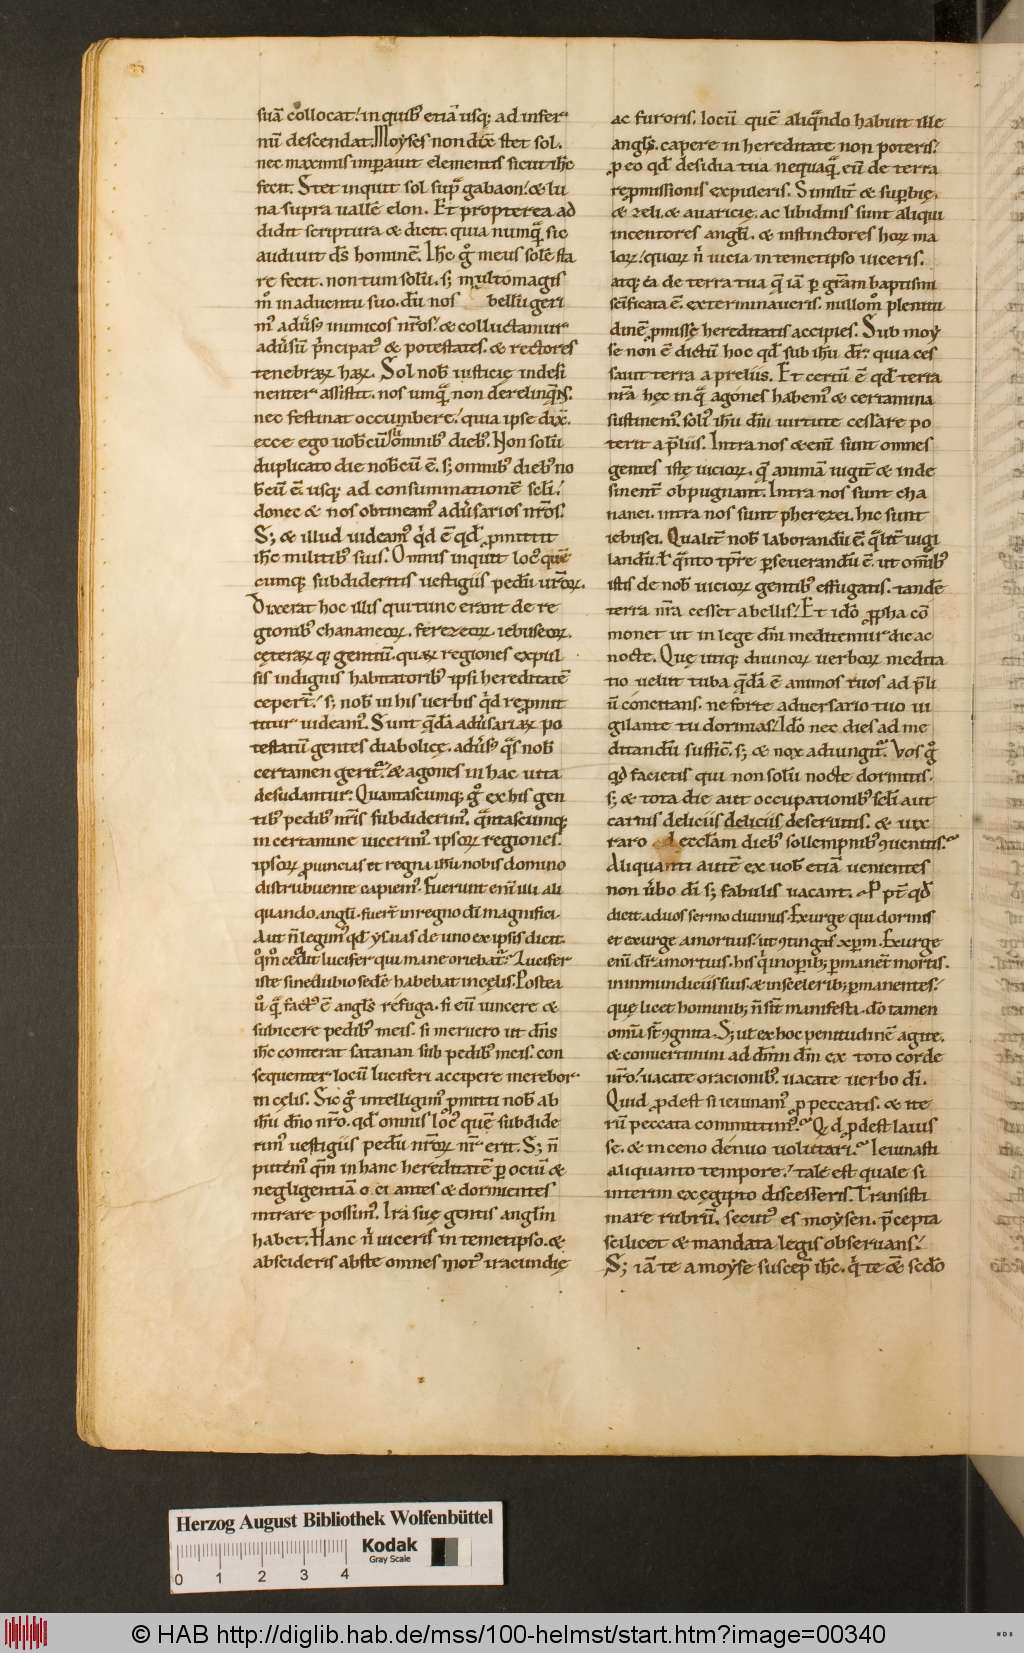 suā collocat. in quib; etiā usq; ad infer
nū descendat. Moyses non dix̄ stet sol.
nec maximis imꝑauit elementis sicut ih̄c
fecit. Stet inquit sol sup̄ gabaon. & lu
na supra uallē elon. Et propterea ad
didit scriptura & dicit. quia numquā sic
audiuit d̄s hominē. Ih̄c g̊ meus solē sta
re fecit. non tum solū. s; multo magis
m̊ in aduentu suo. dū nos bellū geri
m; adūsus inimicos nr̄os. & colluctamur
adūsū p̄ncipat; & potestates. & rectores
tenebraꝝ haꝝ. Sol nob iusticię indesi
nenter assistit. nos umquā non derelinq̄ns.
nec festinat occumbere. quia ipse dix̄.
ecce ego uob cū sū omnib; dieb;. Non solū
duplicato die nob cū ē. s; omnib; dieb; no
b cū ē. usq; ad consummationē scl̄i.
donec & nos obtineam; adūsarios nr̄os.
S; & illud uideam; q̇d ē qd̄ ꝓmittit
ih̄c militib; suis. Omnis inquit loc; quē
cumq; subdideritis uestigiis pedū ur̄oꝝ.
Dixerat hoc illis qui tunc erant de re
gionib; chananeoꝝ. ferezeoꝝ. iebuseoꝝ.
cęteraꝝ q; gentiū. quaꝝ regiones expul
sis indignis habitatorib; ipsi hereditatē
ceper̄t. s; nob in his uerbis q̇d reꝓmit
titur uideam;. Sunt quędā adūsariaꝝ po
testatū gentes diabolicę. adūs; quas nob
certamen gerit̄. & agones in hac uita
desudantur. Quantascumq; g̊ ex his gen
tib; pedib; nr̄is subdiderim;. quantascumq;
in certamine uicerim;. ipsoꝝ regiones.
ipsoꝝ ꝓuincias et regna ih̄u nobis domino
distribuente capiem;. Fuerunt enī illi ali
quando angl̄i. fuer̄t in regno d̄i magnifici.
Aut n̄ legim; qd̄ ysaias de uno ex ipsis dicit.
q̊m̊ cecidit lucifer qui mane oriebat̄. Lucifer
iste sine dubio sedē habebat in cęlis. Postea
u̇ quā fact; ē angl̄s refuga. si eū uincere &
subicere pedib; meis. si meruero ut dn̄s
ih̄c conterat satanan sub pedib; meis. con
sequenter locū luciferi accipere merebor
in cęlis. Sic g̊ intelligim; ꝓmitti nob ab
ih̄u dn̄o nr̄o. qd̄ omnis loc; quē subdide
rim; uestigiis pedū nr̄oꝝ nr̄ erit. S; n̄
putem; qm̄ in hanc hereditatē ꝑ ociū &
negligentiā o ci antes & dormientes
intrare possim;. Ira suę gentis anglm̄
habet. Hanc n̄ uiceris in temetipso. &
abscideris abs te omnes mot; iracundię
ac furoris. locū quē aliquando habuit ille
angl̄s. capere in hereditate non poteris.
ꝓ eo qd̄ desidia tua nequaquā eū de terra
reꝓmissionis expuleris. Similit̄ & suꝑbię.
& zeli. & auaricię. ac libidinis sunt aliqui
incentores angl̄i. & instinctores hoꝝ ma
loꝝ. quoꝝ n̄ uicia in temetipso uiceris.
atq; ea de terra tua quę iā ꝑ gr̄am baptismi
sc̄ificata ē. exterminaueris. nullom̊ plenitu
dinē ꝓmissę hereditatis accipies. Sub moy
se non ē dictū hoc qd̄ sub ih̄u dr̄. quia ces
sauit terra a preliis. Et certū ē qd̄ terra
nr̄a hęc in qua agones habem; & certamina
sustinem;. soli; ih̄u dn̄i uirtute cessare po
terit a p̄liis. Intra nos & enī sunt omnes
gentes istę uicioꝝ. quę animā iugit̄ & inde
sinent̄ obpugnant. Intra nos sunt cha
nanei. intra nos sunt pherezei. hic sunt
iebusei. Qualit̄ nob laborandū ē. qualit̄ uigi
landū. ł quanto tp̄re ꝑseuerandū ē. ut om̄ib;
istis de nob uicioꝝ gentib; effugatis. tandē
terra nr̄a cesset a bellis. Et ido ꝓpha cō
monet ut in lege dn̄i meditemur die ac
nocte. Quę utiq; diuinoꝝ uerboꝝ medita
tio uelut tuba quędā ē animos tuos ad p̄li
ū concitans. ne forte aduersario tuo ui
gilante tu dormias. Ido nec dies ad me
ditandū suffic̄. s; & nox adiungit̄. Vos g̊
qd̄ facietis qui non solū nocte dormitis.
s; & tota die aut occupationib; scl̄i aut
carnis deliciis deliciis deseruitis. & uix
raro ad eccl̄am dieb; sollempnib; ꝯuenitis.
Aliquanti autē ex uob etiā uenientes
non ūbo d̄i s; fabulis uacant.
dicit ad uos sermo diuinus. Exurge qui dormis
et exurge a mortuis. ut ꝯtingas xp̄m. Exurge
enī dr̄ a mortuis. his qui in oꝑib; ꝑmanent mortis.
in inmundiciis suis. & in sceleribus ꝑmanentes.
quę licet hominib; n̄ sīt manifesta. do tamen
omīa st̄ ꝯgnita. S; ut ex hoc penitudinē agite.
& conuertimini ad dn̄m dm̄ ex toto corde
ur̄o. uacate oracionib;. uacate uerbo d̄i.
Quid ꝓdest si ieiunam; ꝓ peccatis. & ite
rū peccata committim;. Q̇d ꝓdest lauis
se. & in ceno denuo uolutari. Ieiunasti
aliquanto tempore. tale est quale si
interim ex egipto discesseris. Transisti
mare rubrū. secut; es moysen. p̄cepta
scilicet & mandata legis obseruans.
S; iā te a moyse suscep̄ ih̄c. q̇ te &
Herzog August Bibliothek Wolfenbüttel
Kodak
Gray Scale
0 1 2 3 4
© HAB http://diglib.hab.de/mss/100-helmst/start.htm?image=00340